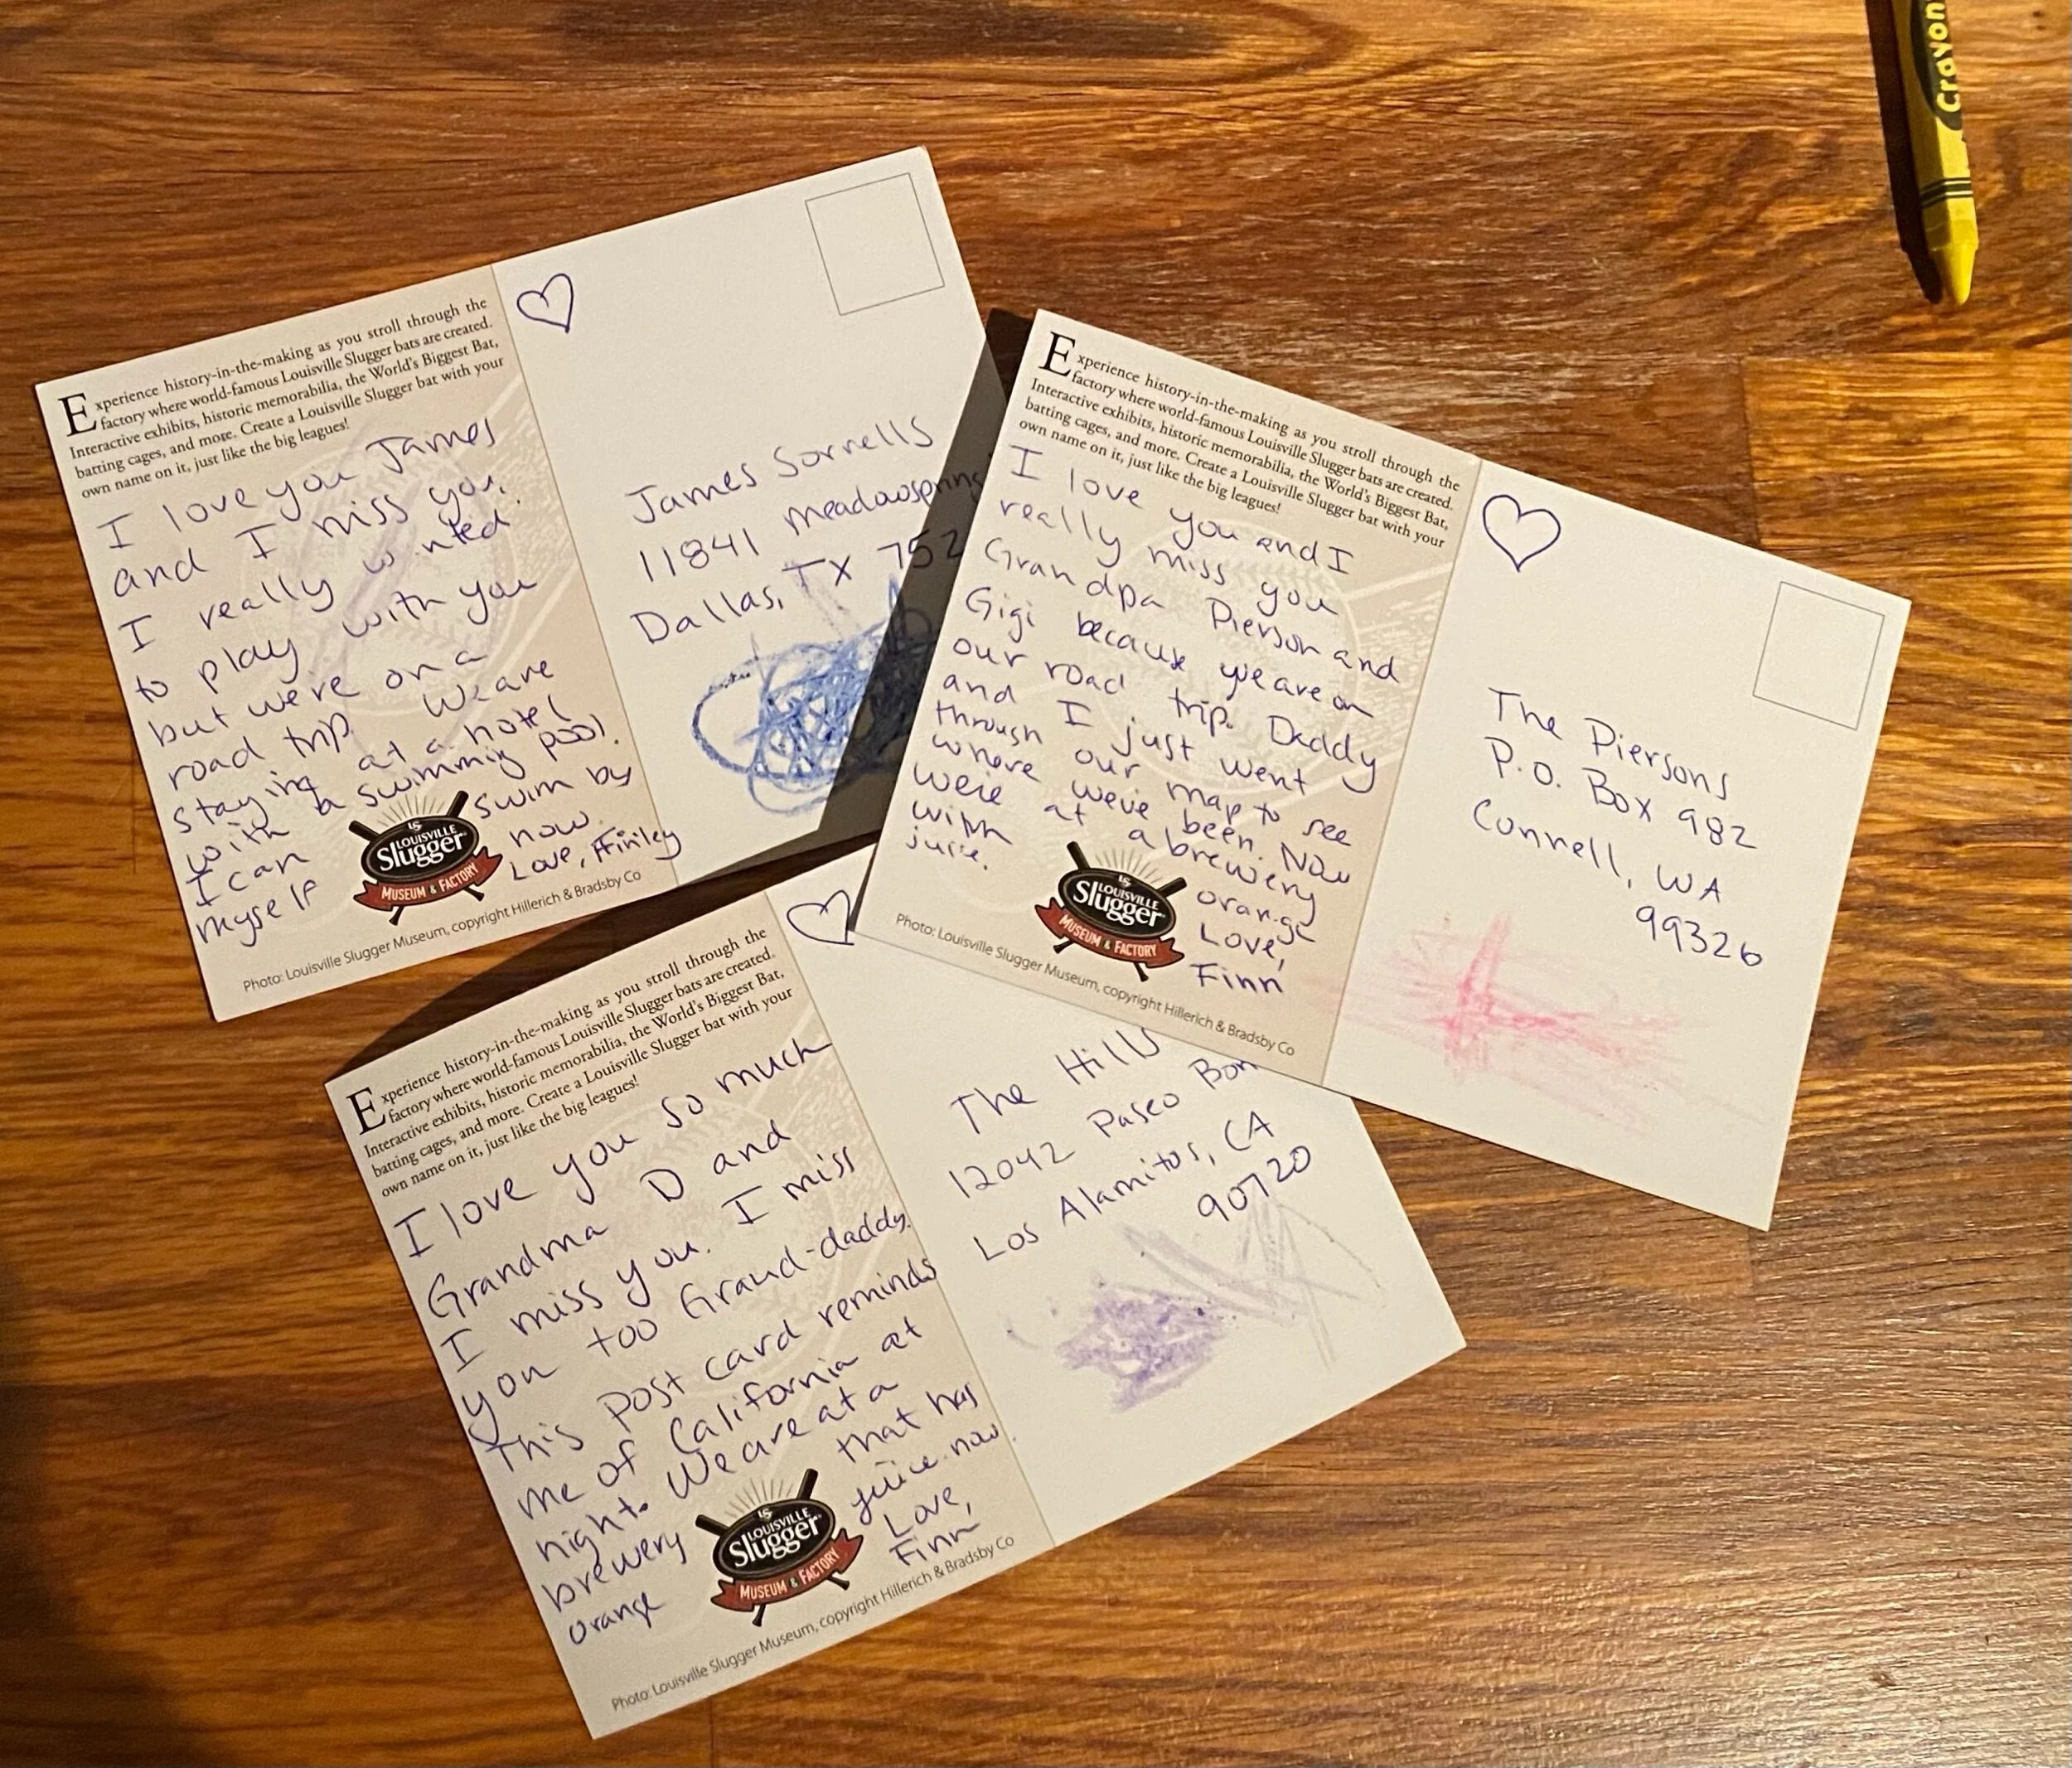 Crayon
Experience history-in-the-making as you stroll through the
factory where world-famous Louisville Slugger bats are created.
Interactive exhibits, historic memorabilia, the World's Biggest Bat,
batting cages, and more. Create a Louisville Slugger bat with your
own name on it, just like the big leagues!
I love you James
and I miss you.
I really wanted
to play with you
but we're on a
road trip. We are
staying at a hotel
with a swimming pool.
I can swim by
myself now.
Love, Finley
LS
LOUISVILLE
Slugger
MUSEUM & FACTORY
Photo: Louisville Slugger Museum, copyright Hillerich & Bradsby Co
James Sorrells
11841 meadowspring
Dallas, TX 752
Experience history-in-the-making as you stroll through the
factory where world-famous Louisville Slugger bats are created.
Interactive exhibits, historic memorabilia, the World's Biggest Bat,
batting cages, and more. Create a Louisville Slugger bat with your
own name on it, just like the big leagues!
I love you and I
really miss you
Grandpa Pierson and
Gigi because we are on
our road trip. Daddy
and I just went
through our map to see
where we've been. Now
we're at a brewery
with orange
juice. Love,
Finn
LS
LOUISVILLE
Slugger
MUSEUM & FACTORY
Photo: Louisville Slugger Museum, copyright Hillerich & Bradsby Co
The Piersons
P.O. Box 982
Connell, WA
99326
Experience history-in-the-making as you stroll through the
factory where world-famous Louisville Slugger bats are created.
Interactive exhibits, historic memorabilia, the World's Biggest Bat,
batting cages, and more. Create a Louisville Slugger bat with your
own name on it, just like the big leagues!
I love you so much
Grandma D and
I miss you. I miss
you too Grand-daddy.
This post card reminds
me of California at
night. We are at a
brewery that has
orange juice now.
Love,
Finn
LS
LOUISVILLE
Slugger
MUSEUM & FACTORY
Photo: Louisville Slugger Museum, copyright Hillerich & Bradsby Co
The Hills
12042 Paseo Bon
Los Alamitos, CA
90720